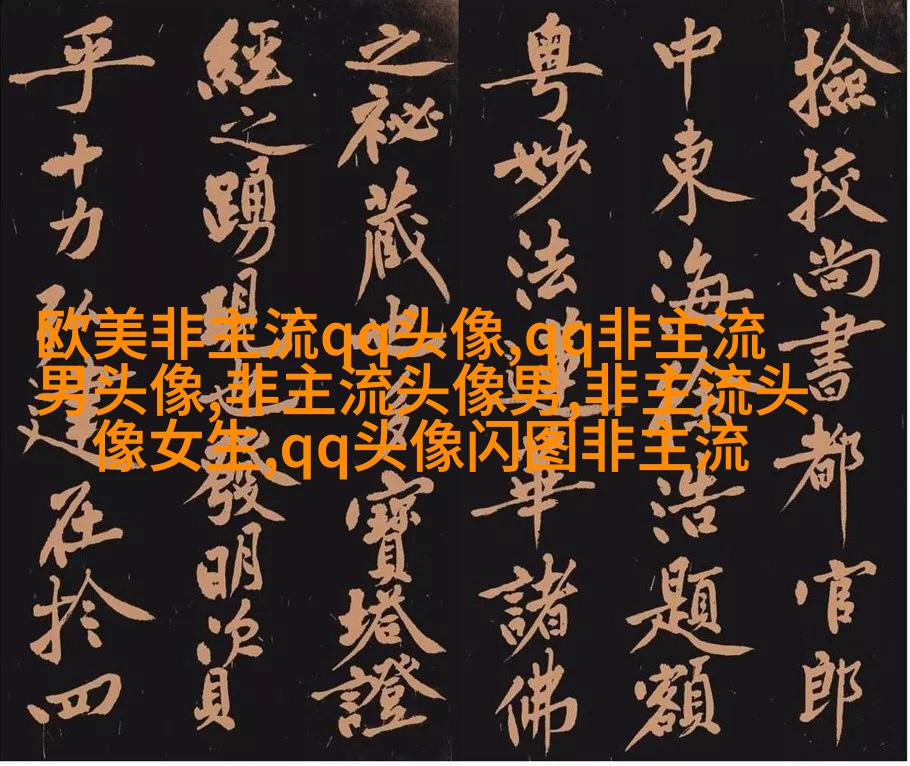 撿挍尚書都官郎
中東海徐浩題額
粤妙法蓮華諸佛
之祕藏也多寶塔證
經之踴現也發明資
乎十力弘建在於四
欧美非主流qq头像,qq非主流
男头像,非主流头像男,非主流头
像女生,qq头像闪图非主流